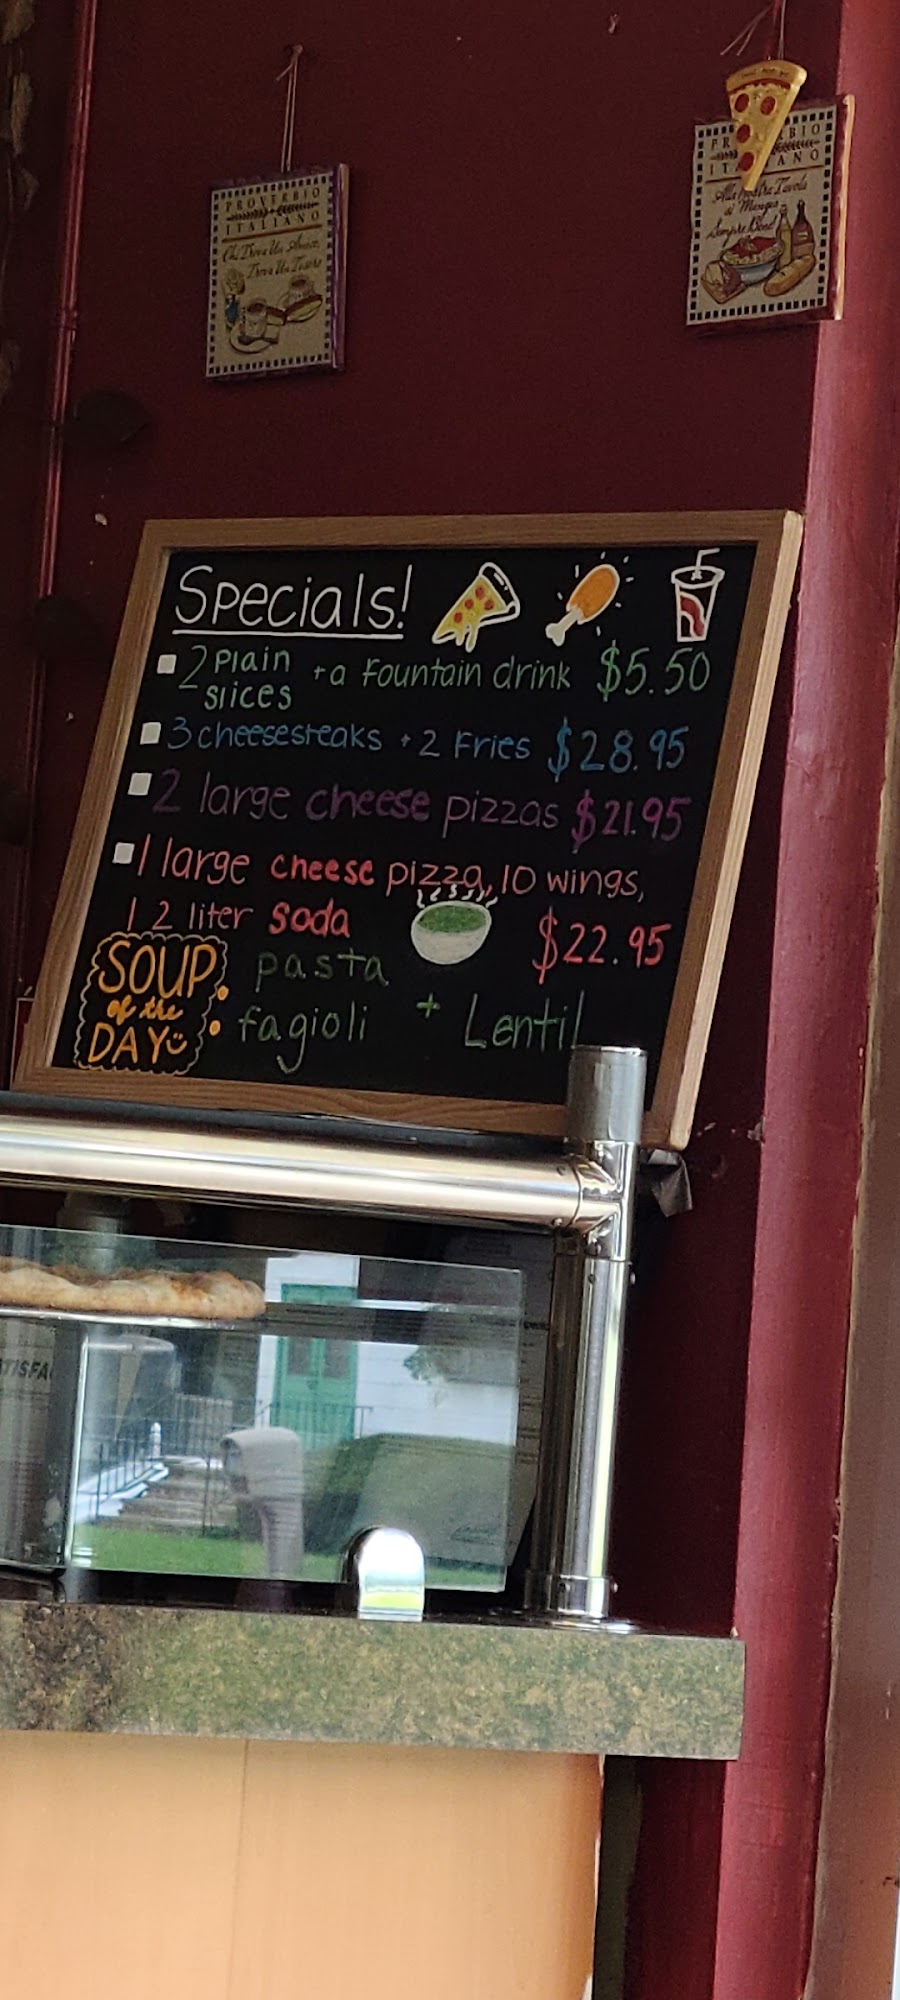 PROVERBIO
ITALIANO
Chi Trova Un Amico,
Trova Un Tesoro
PR BIO
ITALIANO
Alla Nostra Tavola
si Mangia
Sempre Bene!
Specials!
2 Plain slices + a Fountain drink $5.50
3 cheesesteaks + 2 Fries $28.95
2 large cheese pizzas $21.95
1 large cheese pizza, 10 wings,
1 2 liter soda $22.95
SOUP of the DAY : pasta fagioli + Lentil
ATISFA